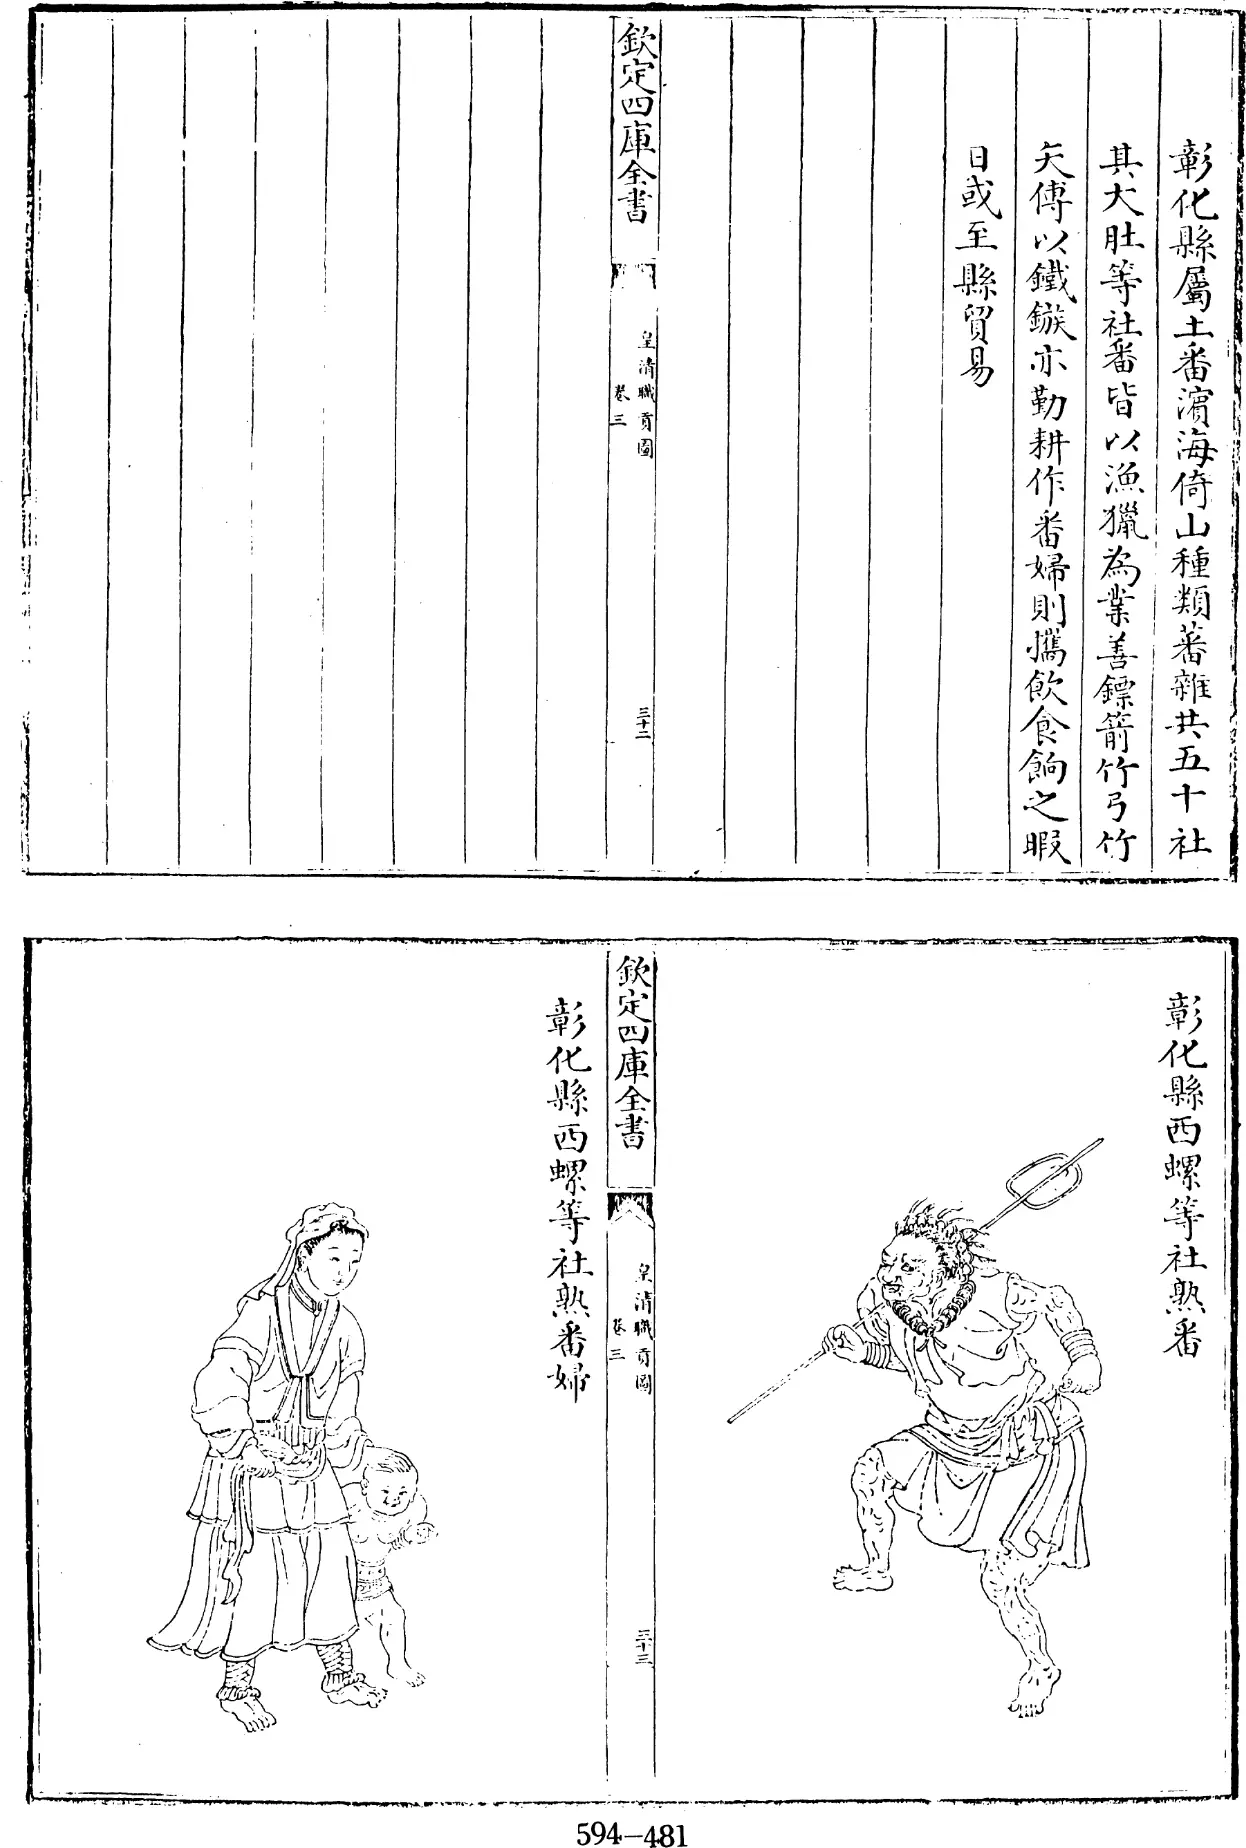 彰化縣屬土番濱海倚山種類蕃雜共五十社
其大肚等社番皆以漁獵為業善鏢箭竹弓竹
矢傅以鐵鏃亦勤耕作番婦則攜飲食餉之暇
日或至縣貿易
欽定四庫全書
皇清職貢圖
卷三
三十二
彰化縣西螺等社熟番
欽定四庫全書
皇清職貢圖
卷三
三十三
彰化縣西螺等社熟番婦
594-481